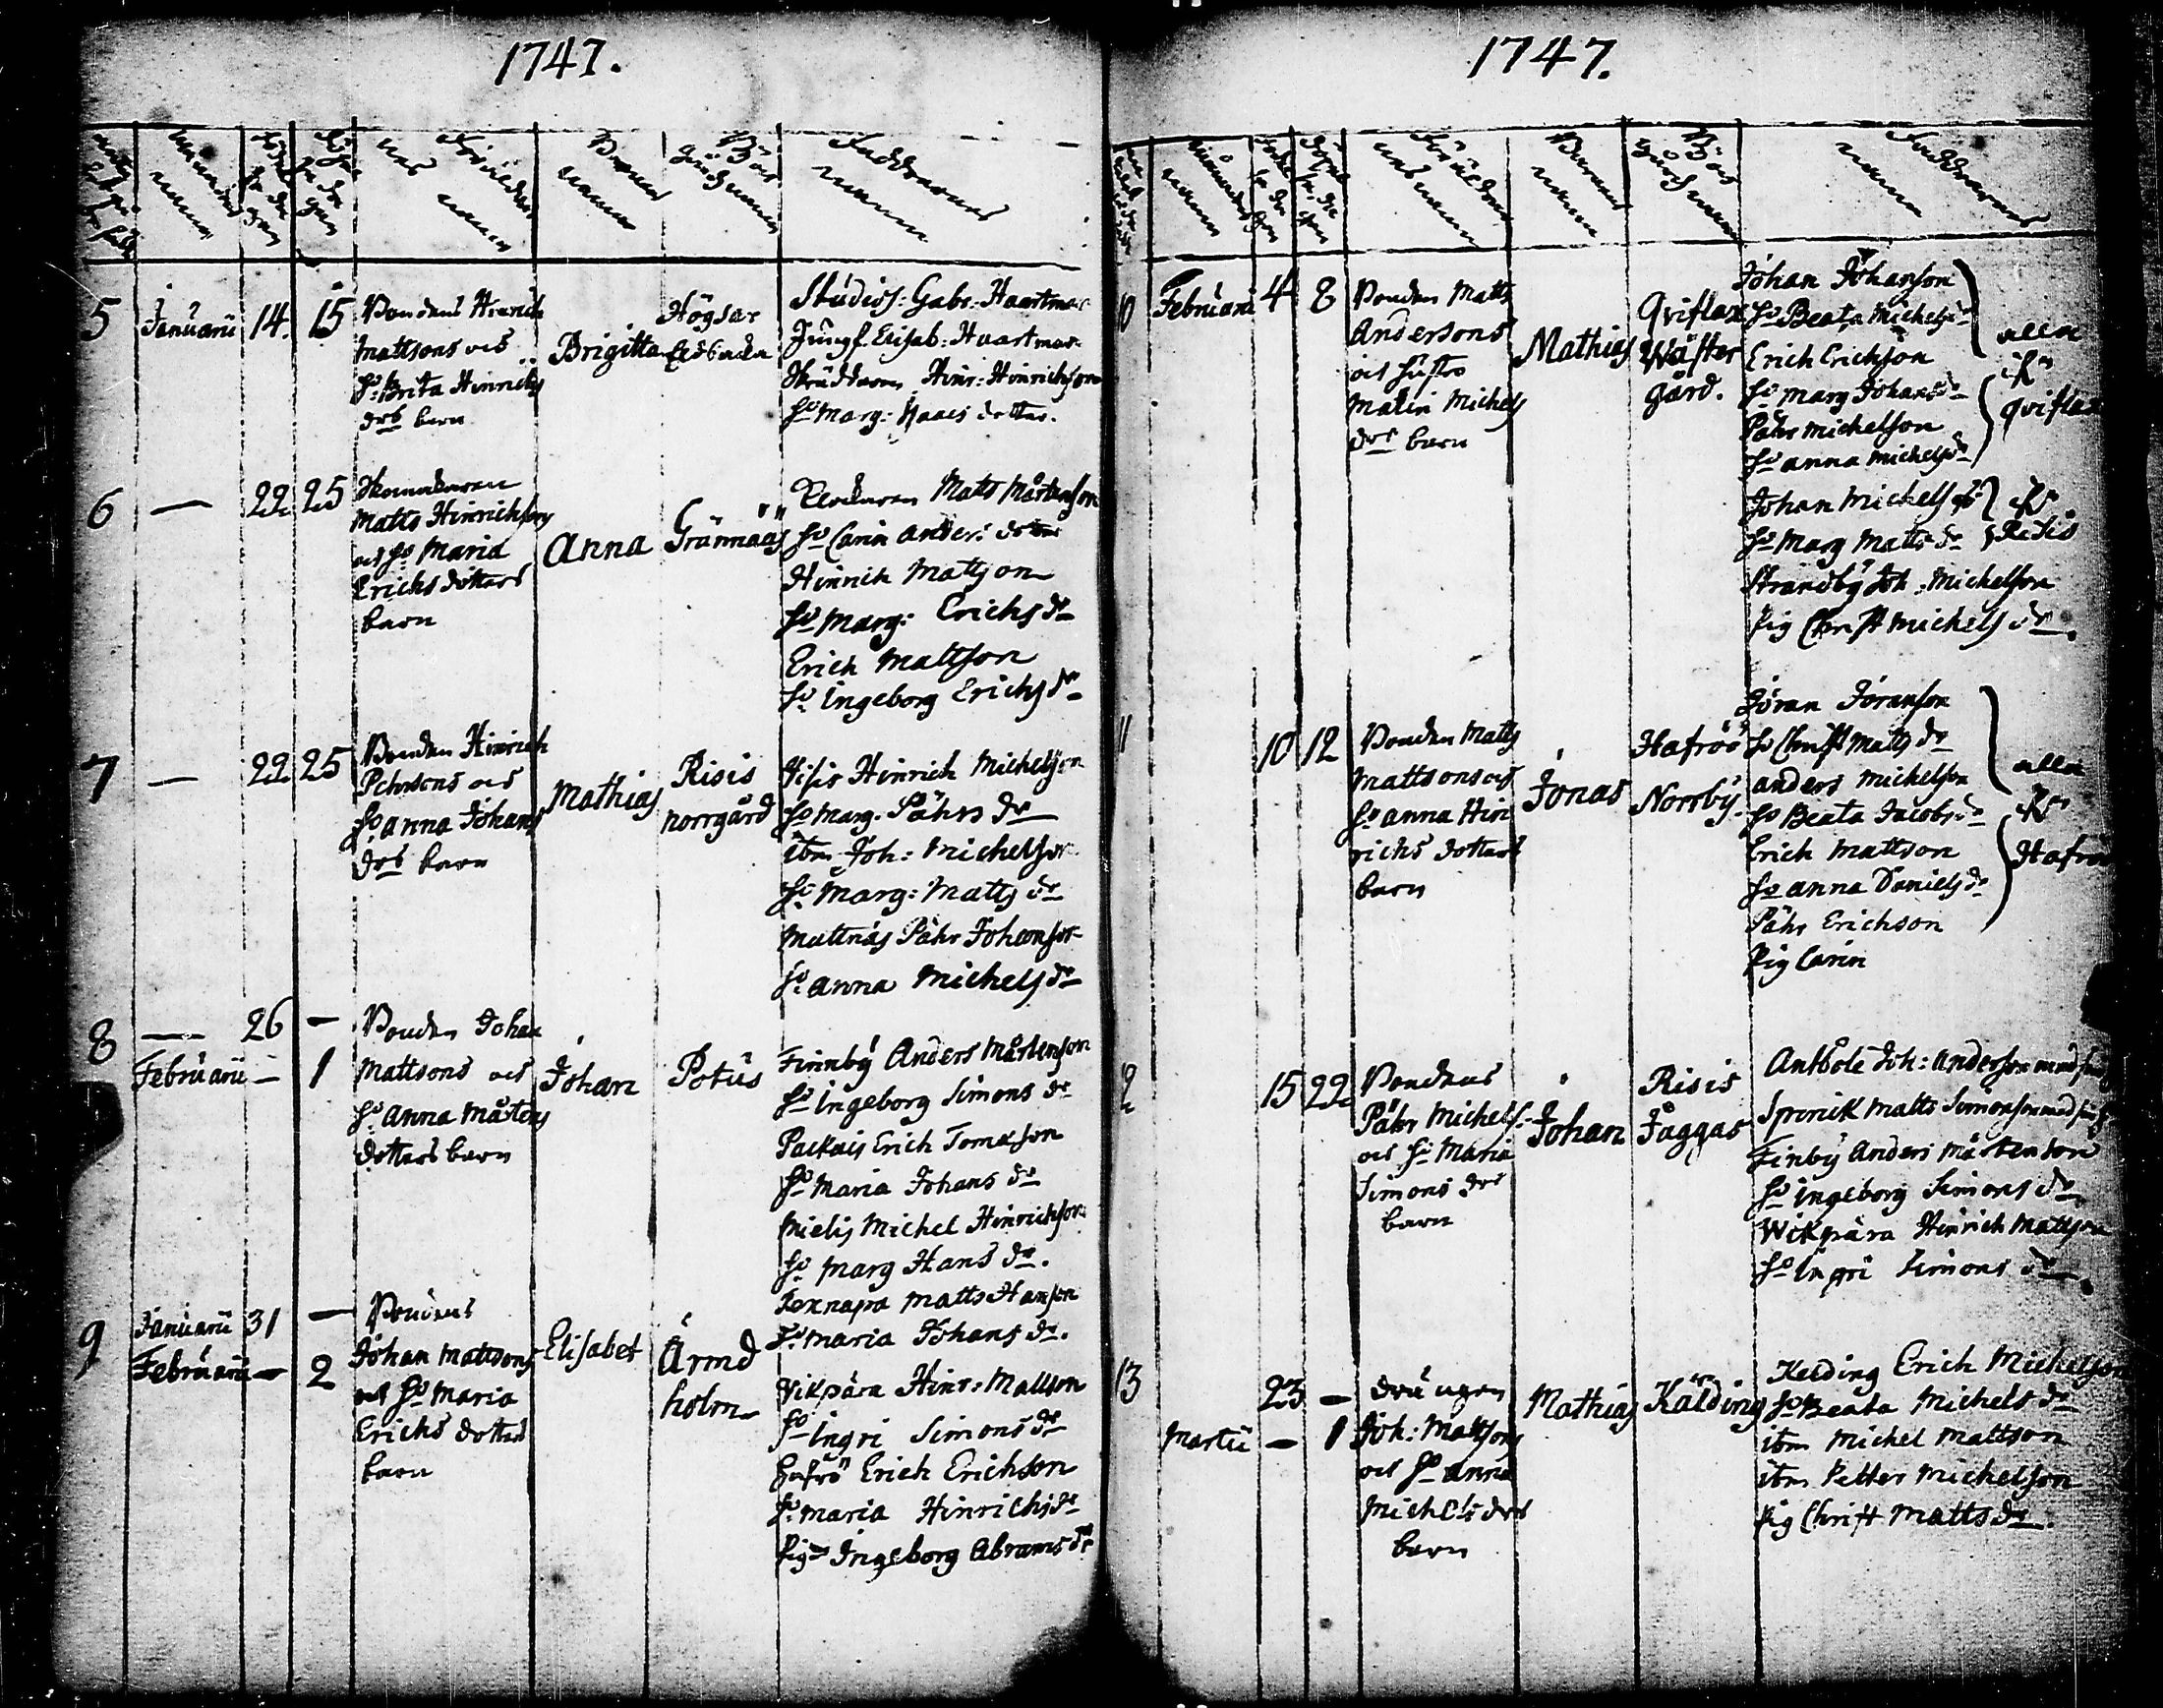 1747.
5 Januarii 14. 15
Bondens Hinrich
Mattsons och
Ho Brita Hinrichs
drs barn
Brigitta
Högsar
Studios: Gabr: Haartman
Jungf. Elisab: Haartman
Skräddaren Hinr: Hinrichson
Ho Marg: Isaacs dotter.
6 — 22 25
Skomakaren
Matts Hinrichsons
och Ho Maria
Erichs dotters
barn
Anna
Grännäs
Klockaren Matts Mårtenson
Ho Carin Anders dotter
Hinrich Mattson
Ho Marg: Erichs dr
Erich Mattson
Ho Ingeborg Erichs dr
7 — 22 25
Bonden Hinrich
Pehrsons och
Ho Anna Johans
drs barn
Mathias
Risis
norrgård
Risis Hinrich Michelson
Ho Marg. Pährs dr
ibm Joh: Michelson
Ho Marg: Matts dr
Mattnäs Pähr Johanson
Ho Anna Michels dr
8 — 26 —
Februarii — 1
Bonden Johan
Mattsons och
Ho Anna Mårtens
dotters barn
Johan
Potis
Finnby Anders Mårtenson
Ho Ingeborg Simons dr
Packais Erich Tomasson
Ho Maria Johans dr
Mielis Michel Hinrichson
Ho Marg Hans dr.
Matts Hanson
Ho Maria Johans dr.
9 Januarii 31 —
Februarii — 2
Bondens
Johan Mattsons
och Ho Maria
Erichs dotters
barn
Elisabet
Ärmd
holm
Wikpära Hinr: Mattson
Ho Ingri Simons dr
Hafrö Erich Erichson
Ho Maria Hinrichs dr
Pig Ingeborg Abrams dr
1747.
10 Februarii 4 8
Bonden Matts
Andersons
och hustro
Malin Michels
drs barn
Mathias
Qviflax
Wäster
gård.
Johan Johanson
Ho Beata Michels dr
Erich Erichson
Ho Marg Johans dr
Pähr Michelson
Ho Anna Michels dr
alla
ifr
qviflax
Johan Michelson
Ho Marg Matts dr
ifr
Risis
Strandby Joh: Michelson
Pig Christ Michels dr.
11 10 12
Bonden Matts
Mattsons och
Ho Anna Hin
richs dotters
barn
Jonas
Hafröö
Norrby.
Jöran Jöranson
Ho Christ Matts dr
Anders Michelson
Ho Beata Jacobs dr
Erich Mattson
Ho Anna Daniels dr
Pähr Erichson
Pig Carin
alla
ifr
Hafrö
12 15 22
Bondens
Pähr Michels:
och Ho Maria
Simons drs
barn
Johan
Risis
Jaggas
Antböle Joh: Anderson med
Matts Simonson med
Finby Anders Mårtenson
Ho Ingeborg Simons dr
Wikpära Hinrich Mattson
Ho Ingri Simons dr.
13 23 —
Martii — 1
Drängen
Joh: Mattsons
och Ho Anna
Michels drs
barn
Mathias
Kälding
Kelding Erich Michelson
Ho Beata Michels dr
ibm Michel Mattson
ibm Petter Michelson
Pig Christ Matts dr.